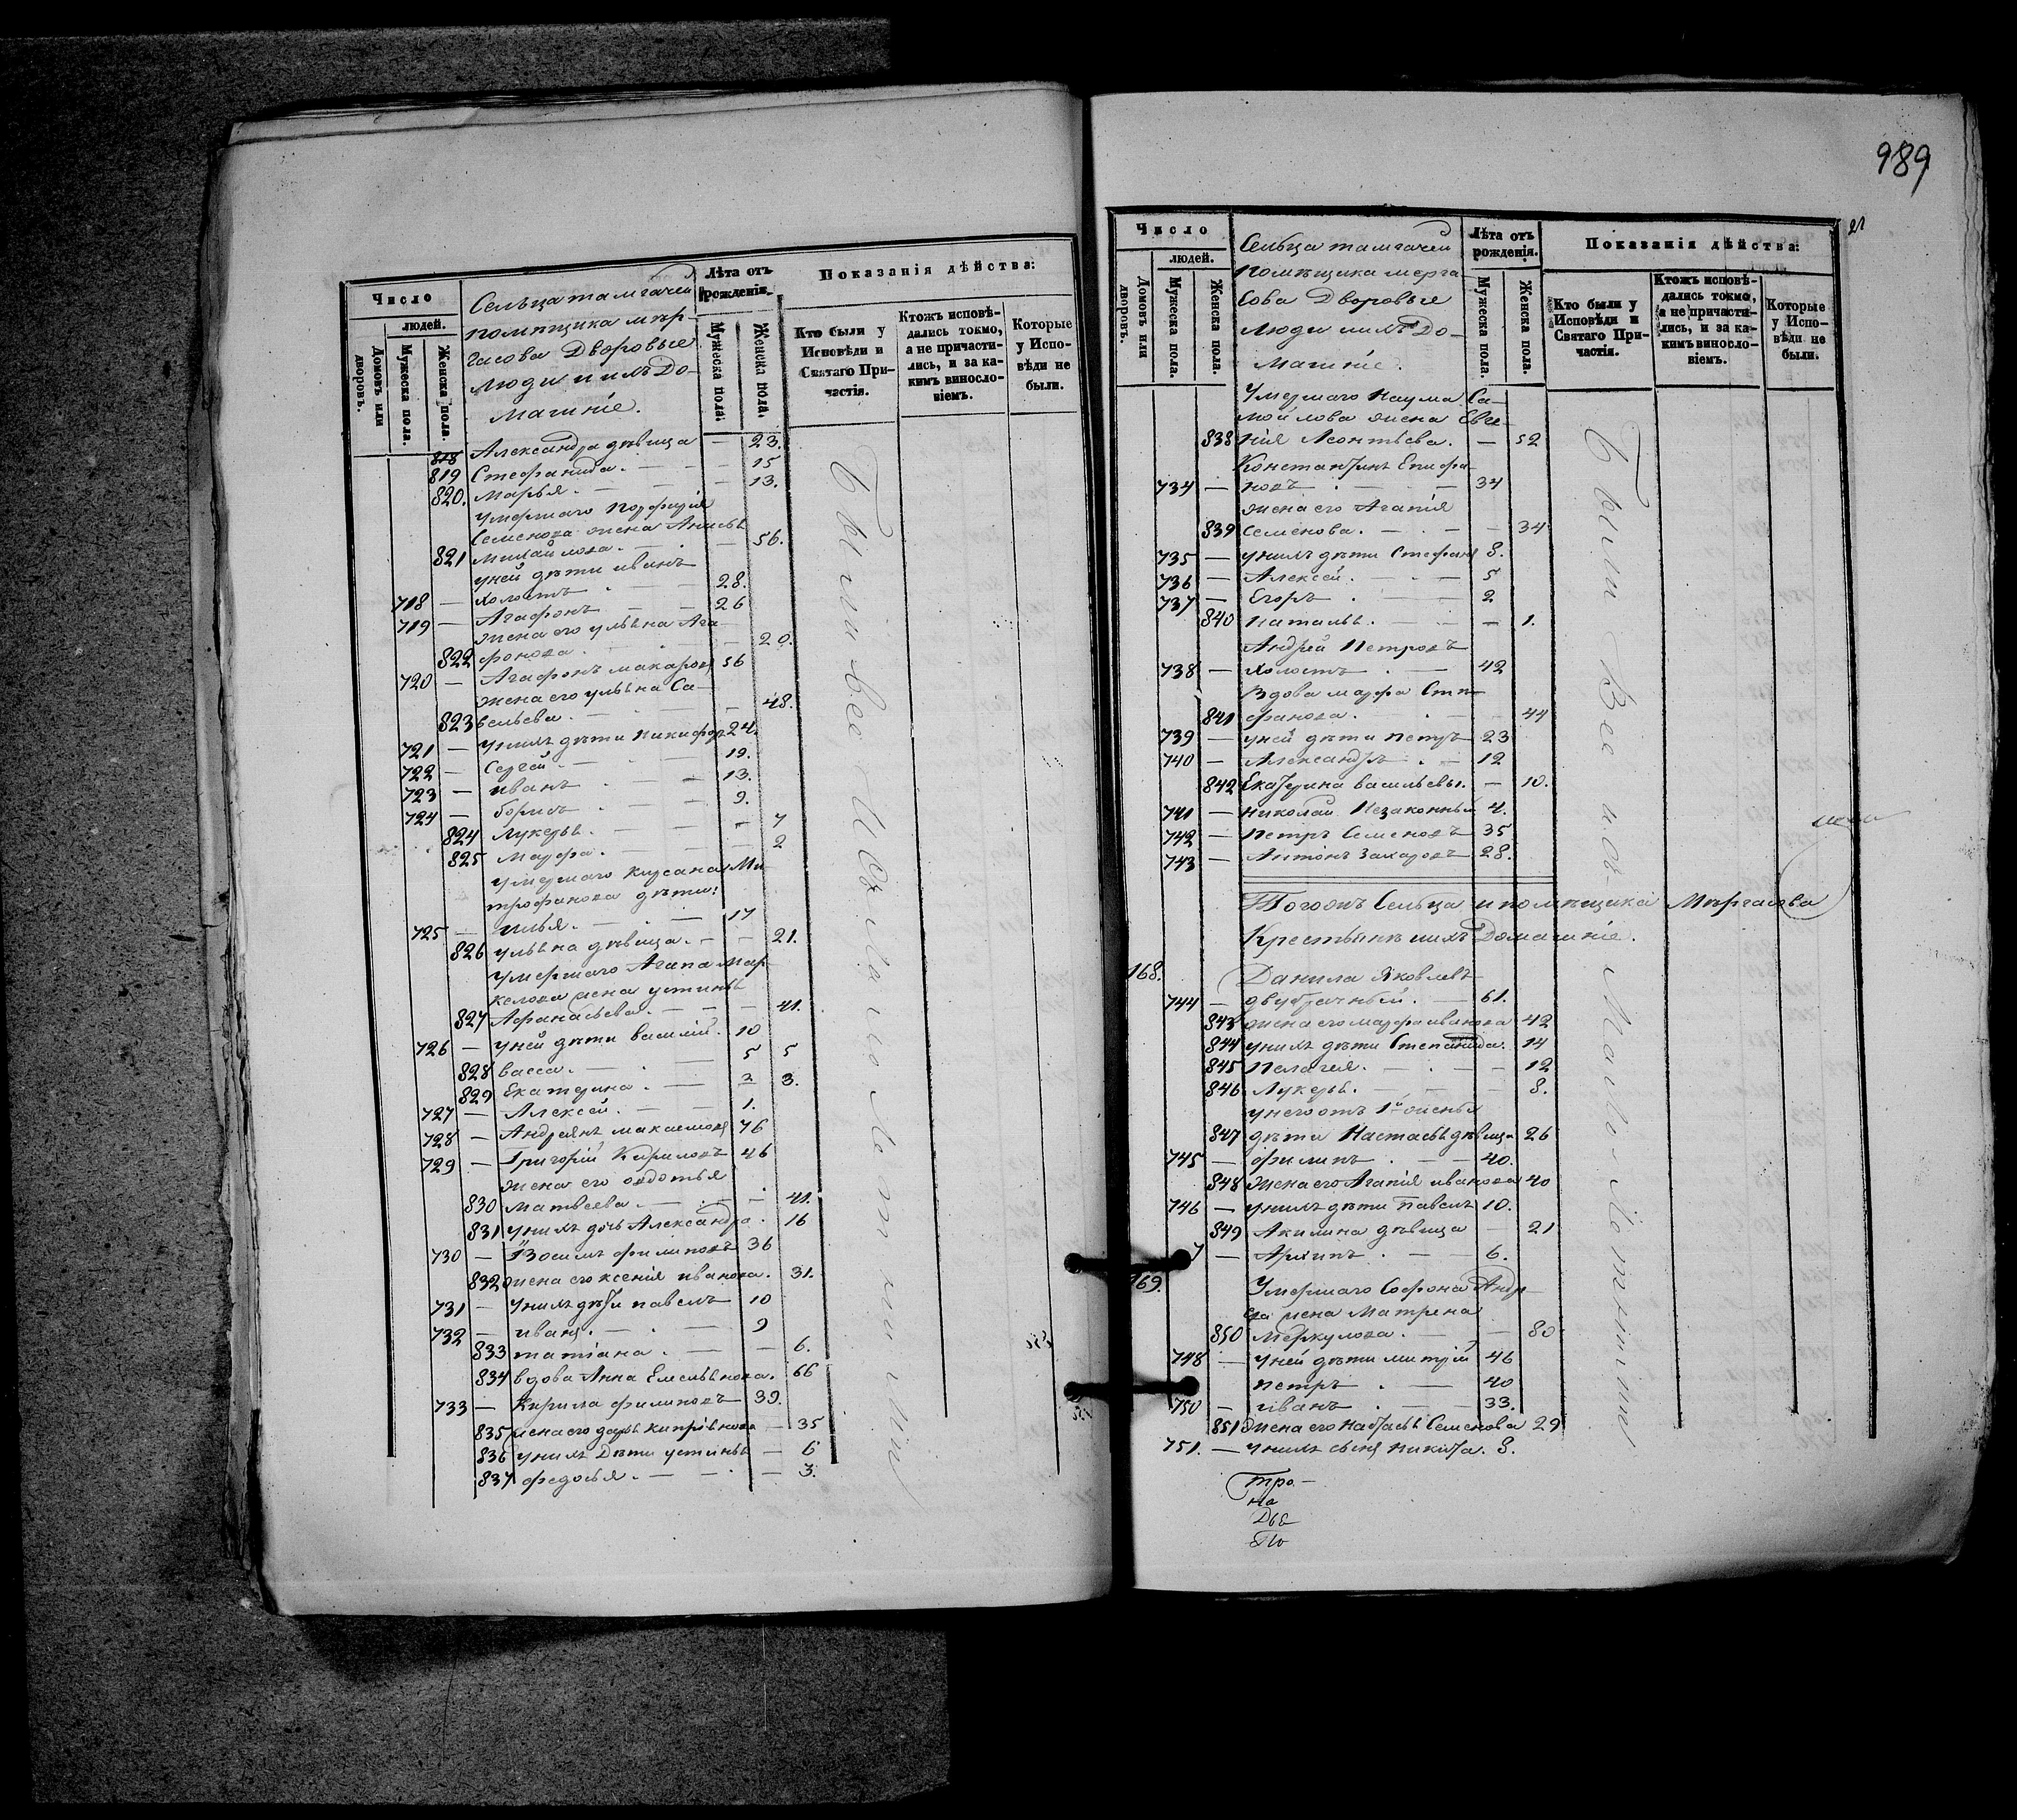 Число
людей.
Домовъ или дворовъ.
Мужеска пола.
Женска пола.
Сельца тамгачей
помѣщика мѣр-
гасова Дворовые
люди и ихъ До-
машніе.
Лѣта отъ рожденія.
Мужеска пола.
Женска пола.
Показанія дѣйства:
Кто были у Исповѣди и Святаго Причастія.
Ктожъ исповѣдались токмо, а не причастились, и за какимъ винословіемъ.
Которые у Исповѣди не были.
818 Александра дѣвица — 23.
819 Стефанида. — — 15
820. Марья. — — 13.
умершаго Порфирія
Семенова жена Анисья
821 Михайлова. — — 56.
у ней дѣти иванъ
718 — холостъ 28.
719 — Агафонъ — 26
жена его ульяна Ага-
822 фонова. — 20.
720 — Агафонъ макаровъ 56
жена его ульяна Са-
823 вельева. — — 48.
721 — у нихъ дѣти никифоръ 24.
722 — Сергей — 19.
723 — иванъ — 13.
724 — борисъ — 9.
824 Лукерья. — — 7
825 марфа. — — 2
умершаго Кирсана Ми-
трофанова дѣти:
725 — илья. — 17
826 ульяна дѣвица. — 21.
умершаго Агапа Мар-
келова жена устинья
827 Афанасьева. — — 41.
726 — у ней дѣти василій. 10
828 васса. — 5 5
829 Екатерина. — 3.
727 — Алексей. — 1.
728 — Андреянъ максимовъ 76
729 — Григорій Кириловъ 46
жена его овдотья
830 матвеева. — — 41.
831 у нихъ дочь Александра. 16
730 — Зосимъ филиповъ 36
832 жена его ксенія иванова. 31.
731 — у нихъ дѣти павелъ 10
732 — иванъ. — 9
833 татіана. — — 6.
834 вдова Анна Емельянова. 66
733 — Кирила филиповъ 39.
835 жена его дарья кипріянова — 35
836 у нихъ дѣти устинья — 6
837 федосья. — — 3.
Были все
989
21
Число
людей.
Домовъ или дворовъ.
Мужеска пола.
Женска пола.
Сельца тамгачей
помѣщика мерга-
сова Дворовые
люди и ихъ До-
машніе.
Лѣта отъ рожденія.
Мужеска пола.
Женска пола.
Показанія дѣйства:
Кто были у Исповѣди и Святаго Причастія.
Ктожъ исповѣдались токмо, а не причастились, и за какимъ винословіемъ.
Которые у Исповѣди не были.
Умершаго Наума Са-
мойлова жена Евге-
838 нія Леонтьева. — 52
Константинъ Епифа-
734 — новъ — 34
жена его Агапія
839 семенова. — — 34
735 — у нихъ дѣти Стефанъ 8.
736 — Алексей. — 5
737 — Егоръ — 2
840 наталья. — — 1.
Андрей Петровъ
738 — холостъ — 42
Вдова марфа Сте-
841 фанова. — — 44
739 — у ней дѣти петръ 23
740 — Александръ — 12
842 Екатерина васильевы. — 10.
741 — николай Незаконный 4.
742 — петръ Семеновъ 35
743 — Антонъ Захаровъ 28.
Тогожъ Сельца и помѣщика Мѣргасова
Крестьяне и ихъ Домашніе.
168. Данила Яковлевъ
744 — двубрачный. — 61.
843 жена его марфа иванова 42
844 у нихъ дѣти Степанида. 14
845 Пелагея. — — 12
846 Лукерья. — — 8.
у него отъ 1й жены
847 дѣти Настасья дѣвица 26
745 — филипъ — 40.
848 жена его Агапія иванова 40
746 — у нихъ дѣти Павелъ 10.
849 Акилина дѣвица — 21
7 — Архипъ — 6.
169. Умершаго Софона Андр-
ева жена Матрена
850 меркулова. — — 80
748 — у ней дѣти митрій 46
петръ — 40
750 — иванъ — 33.
851 жена его настасья Семенова 29
751. — у нихъ сынъ никита. 8.
Были Все
тро-
на
Две
По